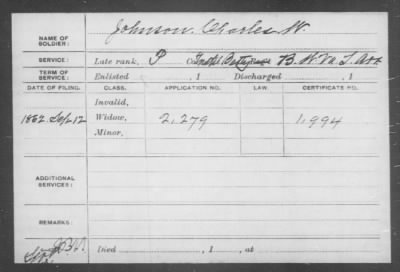 NAME OF SOLDIER: Johnson, Charles W.
SERVICE: Late rank, P Co. Indpt Batty B. W. Va. L. Art.
TERM OF SERVICE: Enlisted , 1 Discharged , 1
DATE OF FILING. CLASS. APPLICATION NO. LAW. CERTIFICATE NO.
Invalid,
1882 Sep 12 Widow, 2,279 1,994
Minor,
ADDITIONAL SERVICES:
REMARKS:
Died , 1 , at